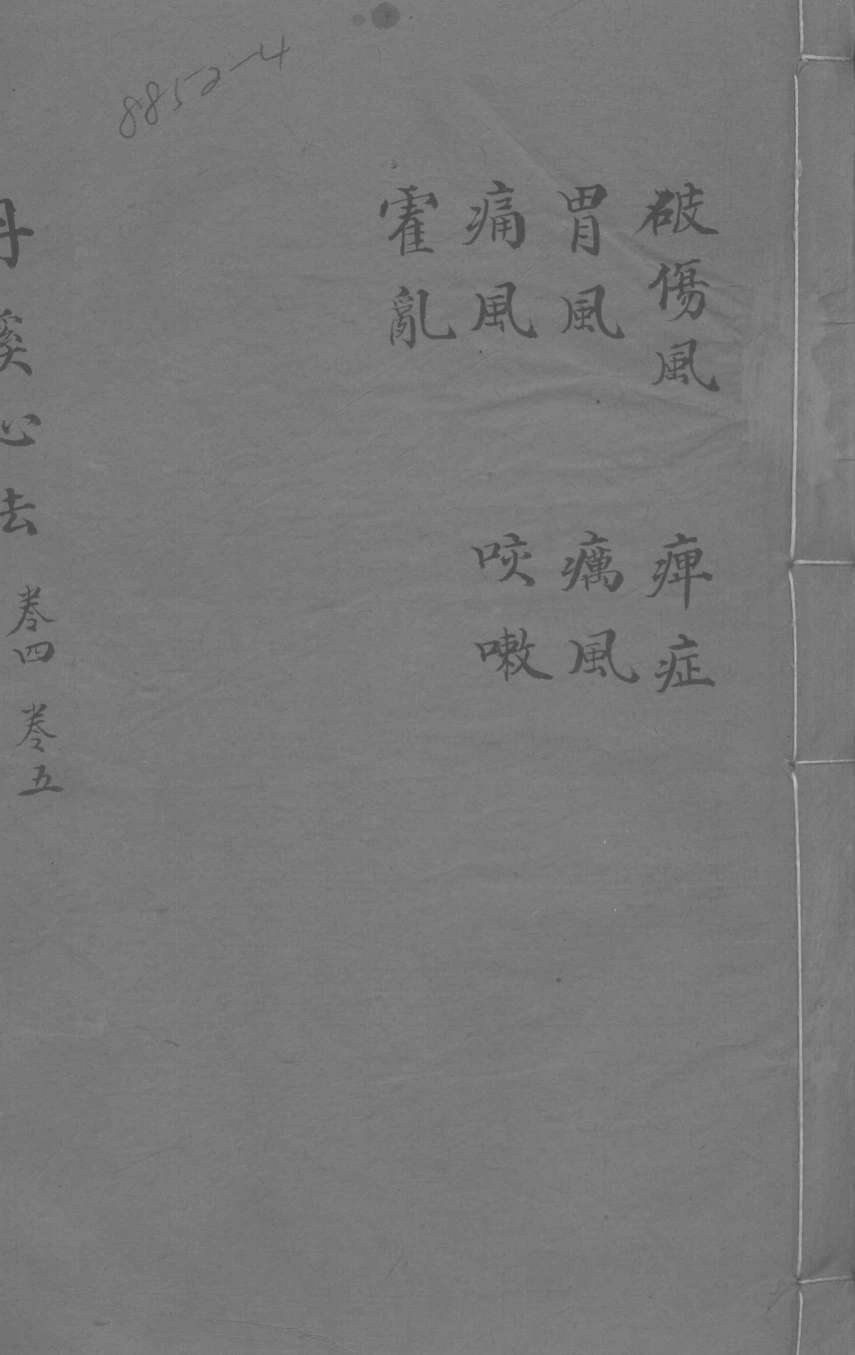 破傷風
痺症
胃風
癘風
痛風
咳嗽
霍亂
丹溪心法
卷四 卷五
8852-4